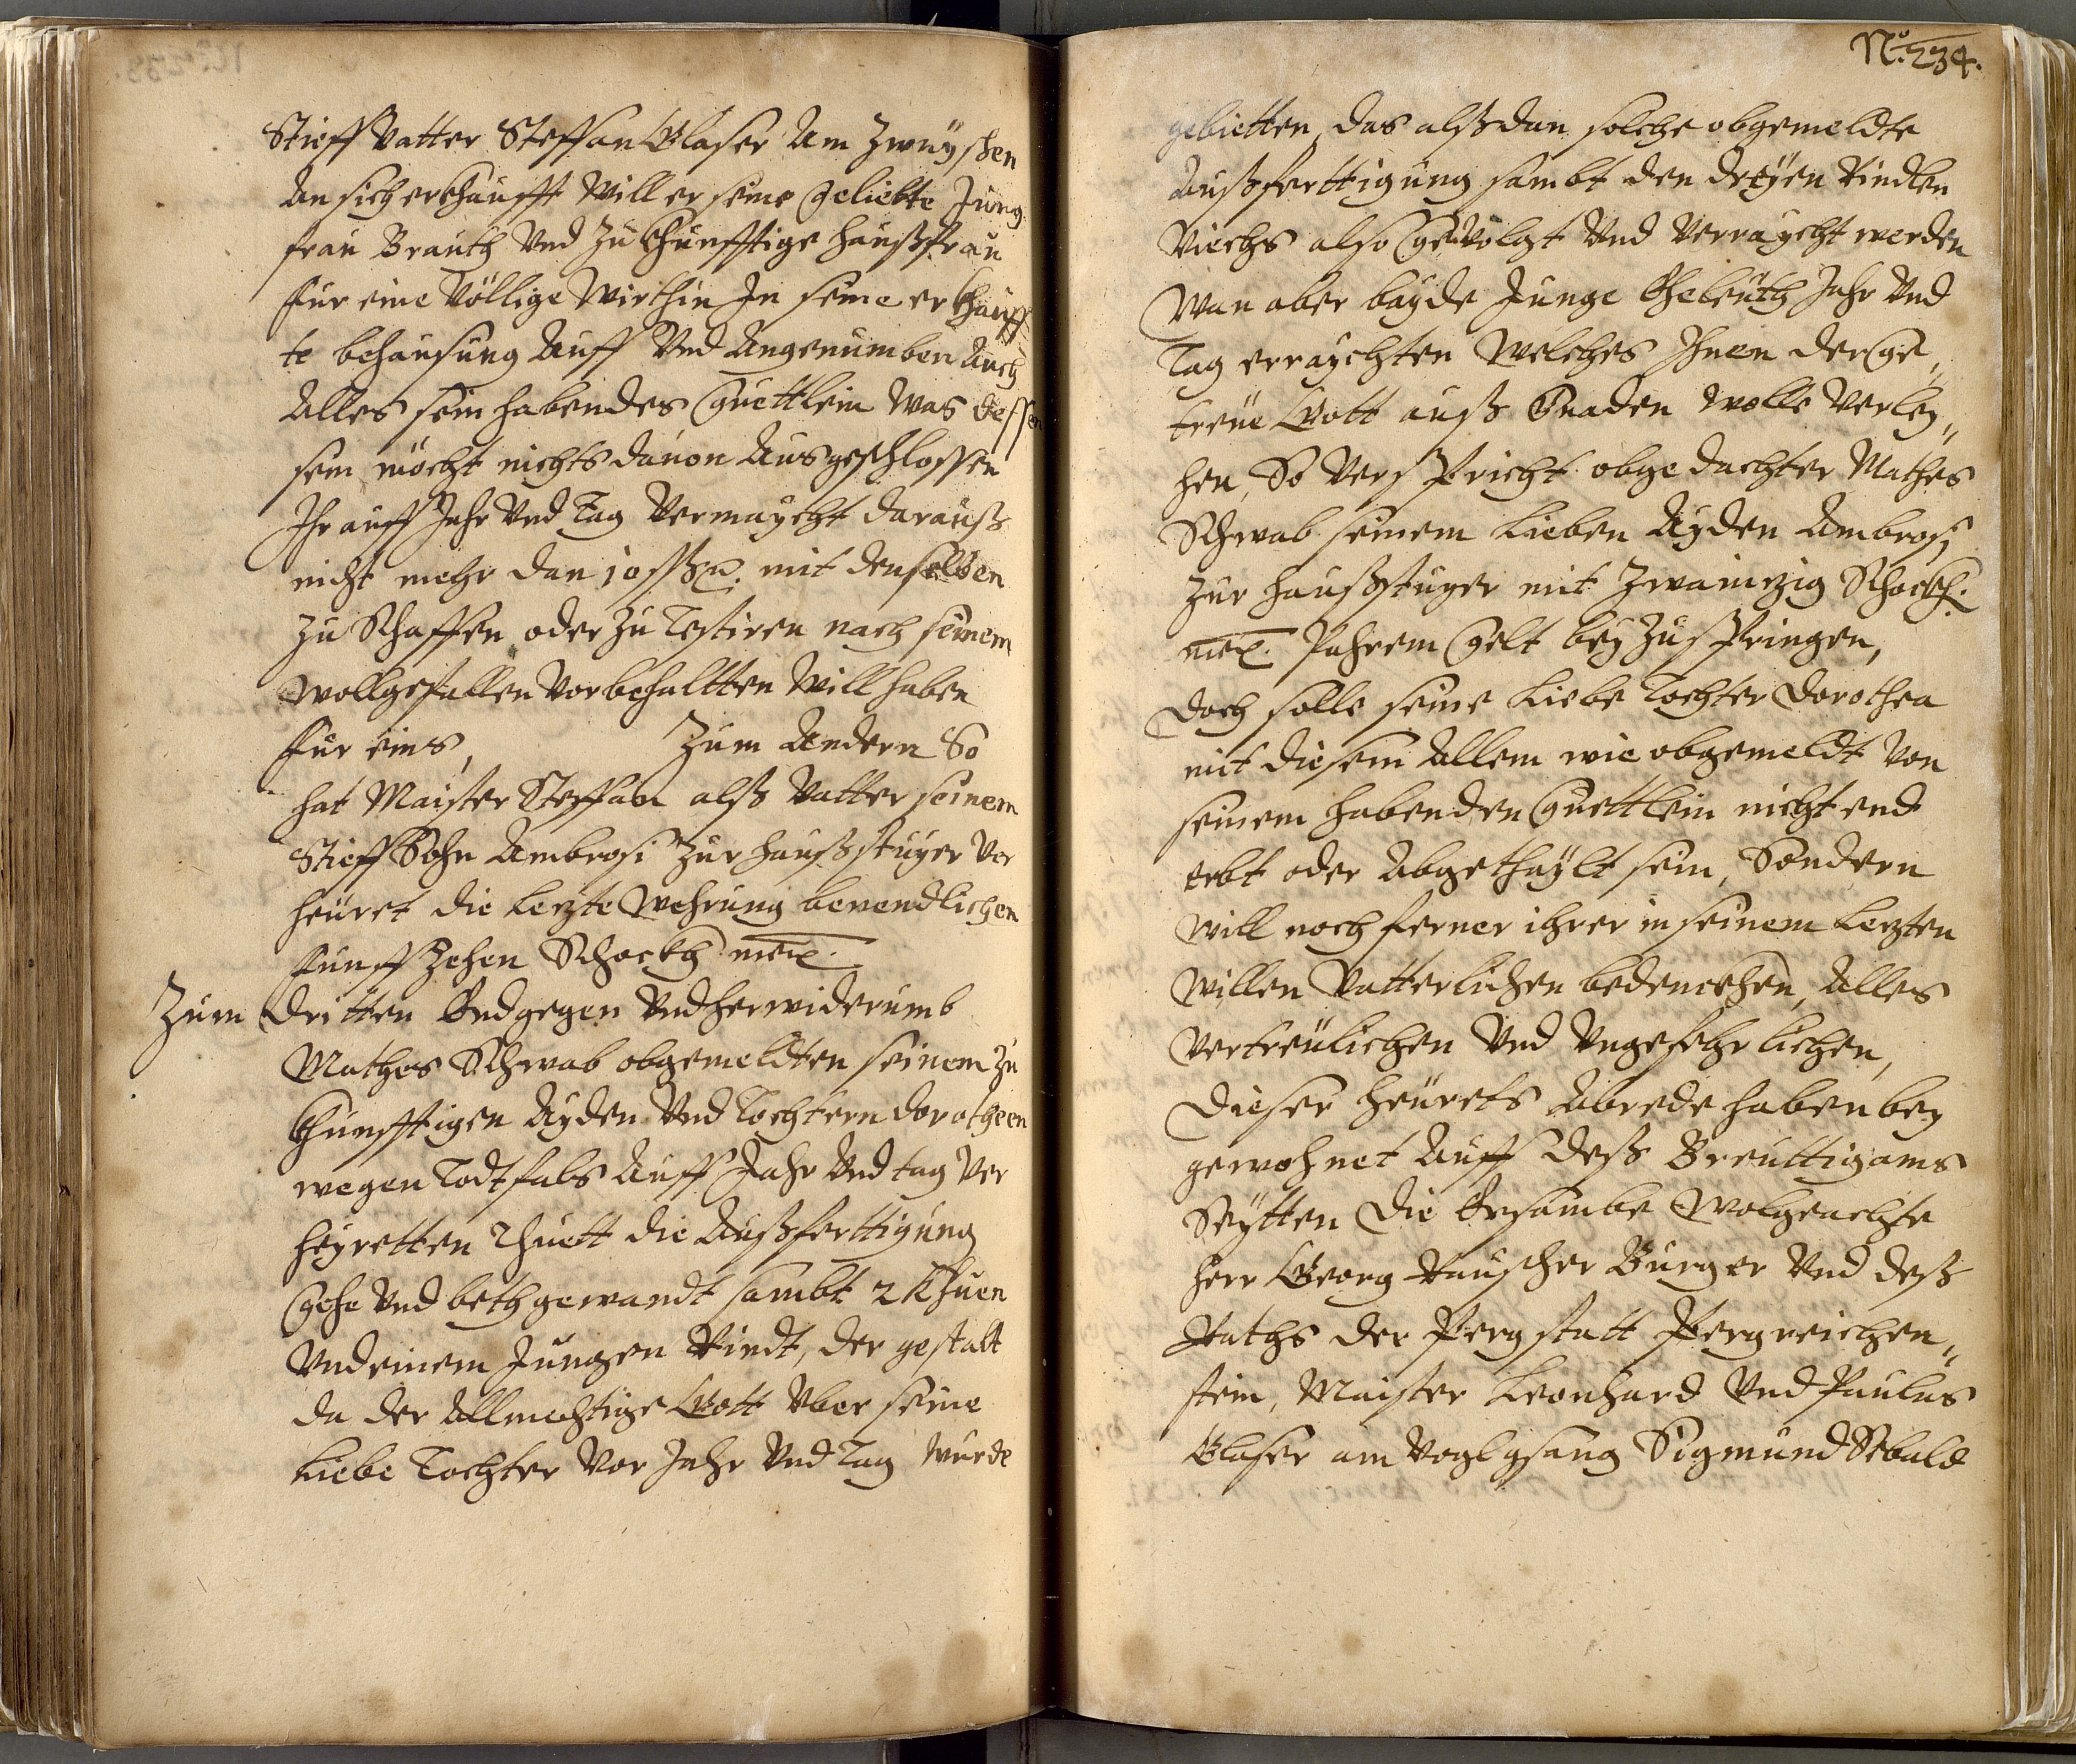 Stieff Vatter Steffan Glaser Am Zwuyschen
An sich erkhaufft will er seine geliebte Jung
frau Brauth Vnd Zu khunfftige haußfrau
für eine Völlige Wirthin In seine erkhauff
te behausung Auff Vnd Angenumben Auch
Alles sein habendes Guettlein Was dessen
sein möcht nichts dauon Ausgeschlossen
Ihr auff Jahr Vnd Tag Vermaycht darauß
nicht mehr dan 10 ßß mit denselben
Zu Schaffen oder Zu Testiren nach seinem
Wollgefallen Vorbehaltten Will haben
für eins, Zum Andern So
hat Maister Steffan alß Vatter seinem
Stieff Sohn Ambrosi Zur haußstuyer Ver
heuret die Lezte Wehrung benendlichen
funff Zehen Schockh meis.
Zum Dritten Endgegen Vnd herwiderumb
Mathes Schwab obgemeldten seinem Zu
khunfftigen Ayden Vnd Tochtern Dorotheen
wegen Todtfals Auff Jahr Vnd tag Ver
heyretten Thuett die Außferttigung
Gehe Vnd bethgewandt sambt 2 Khuen
Vnd einem Jungen Rindt, der gestalt
da der Allmechtige Gott Vber seine
Liebe Tochter Vor Jahr Vnd Tag Wurde
No. 234.
gebietten, das alßdan solche obgemeldte
Außferttigung sambt den dreyen Rindlen
Viechs also gevolgt Vnd Verraycht werden
Wan aber bayde Junge Eheleuth Jahr Vnd
Tag erraychten Welches Ihnen der Ge„
treue Gott auß Gnaden Wolle Verley„
hen, So Verspricht obgedachter Mathes
Schwab seinem Lieben Ayden Ambrosi
Zur haußstuyer mit Zwainzig Schockh.
meis. Pahrem Gelt bey Zuspringen,
doch solle seine Liebe Tochter Dorothea
mit diesem Allem wie obgemeldt Von
seinem habenden Guettlein nicht end
erbt oder Abgethaylt sein, Sondern
will noch ferner ihrer in seinem Lezten
Willen Vatterlichen bedenckhen, Alles
Vertreulichen Vnd Vngefehrlichen,
Dieser heurets Abrede haben bey
gewohnet Auff deß Breuttigams
Seytten Die Ersambe Wolgeachte
herr Georg Rauscher Burger Vnd deß
Raths der Pergstatt Pergreichen„
stein, Maister Leonhard Vnd Paulus
Glaser am Voglgsang Sigmund Sebald